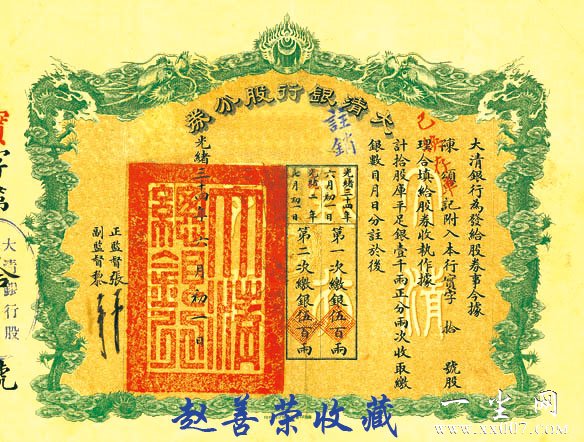 大清銀行股分
註銷
大清銀行為發給股券事今據
陳頌記附入本行寶字 拾 號股
理合填給股券收執作據
計拾股庫平足銀壹千兩正分兩次收取繳
銀數目月日分註於後
光緒三十四年
六月初一日
第一次繳銀伍百兩
七月初一日
第二次繳銀伍百兩
光緒三十四年六月初一日
正監督張
副監督黎
大清銀行股
寶字第
號
赵善荣收藏
一尘网
www.xx007.com